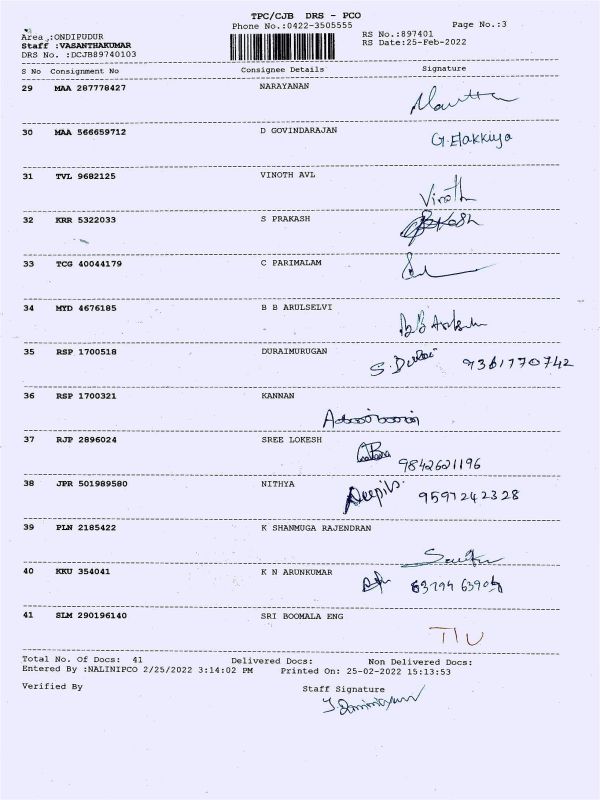 TPC/CJB DRS - PCO
Phone No.:0422-3505555
Page No.:3
Area :ONDIPUDUR
RS No.:897401
Staff :VASANTHAKUMAR
RS Date:25-Feb-2022
DRS No. :DCJB89740103
S No Consignment No Consignee Details Signature
29 MAA 287778427 NARAYANAN
30 MAA 566659712 D GOVINDARAJAN
G.Elakkiya
31 TVL 9682125 VINOTH AVL
Vinoth
32 KRR 5322033 S PRAKASH
33 TCG 40044179 C PARIMALAM
34 MYD 4676185 B B ARULSELVI
35 RSP 1700518 DURAIMURUGAN
S. Durai 9361770742
36 RSP 1700321 KANNAN
37 RJP 2896024 SREE LOKESH
9842621196
38 JPR 501989580 NITHYA
9597242328
39 PLN 2185422 K SHANMUGA RAJENDRAN
40 KKU 354041 K N ARUNKUMAR
41 SLM 290196140 SRI BOOMALA ENG
Total No. Of Docs: 41 Delivered Docs: Non Delivered Docs:
Entered By :NALINIPCO 2/25/2022 3:14:02 PM Printed On: 25-02-2022 15:13:53
Verified By Staff Signature